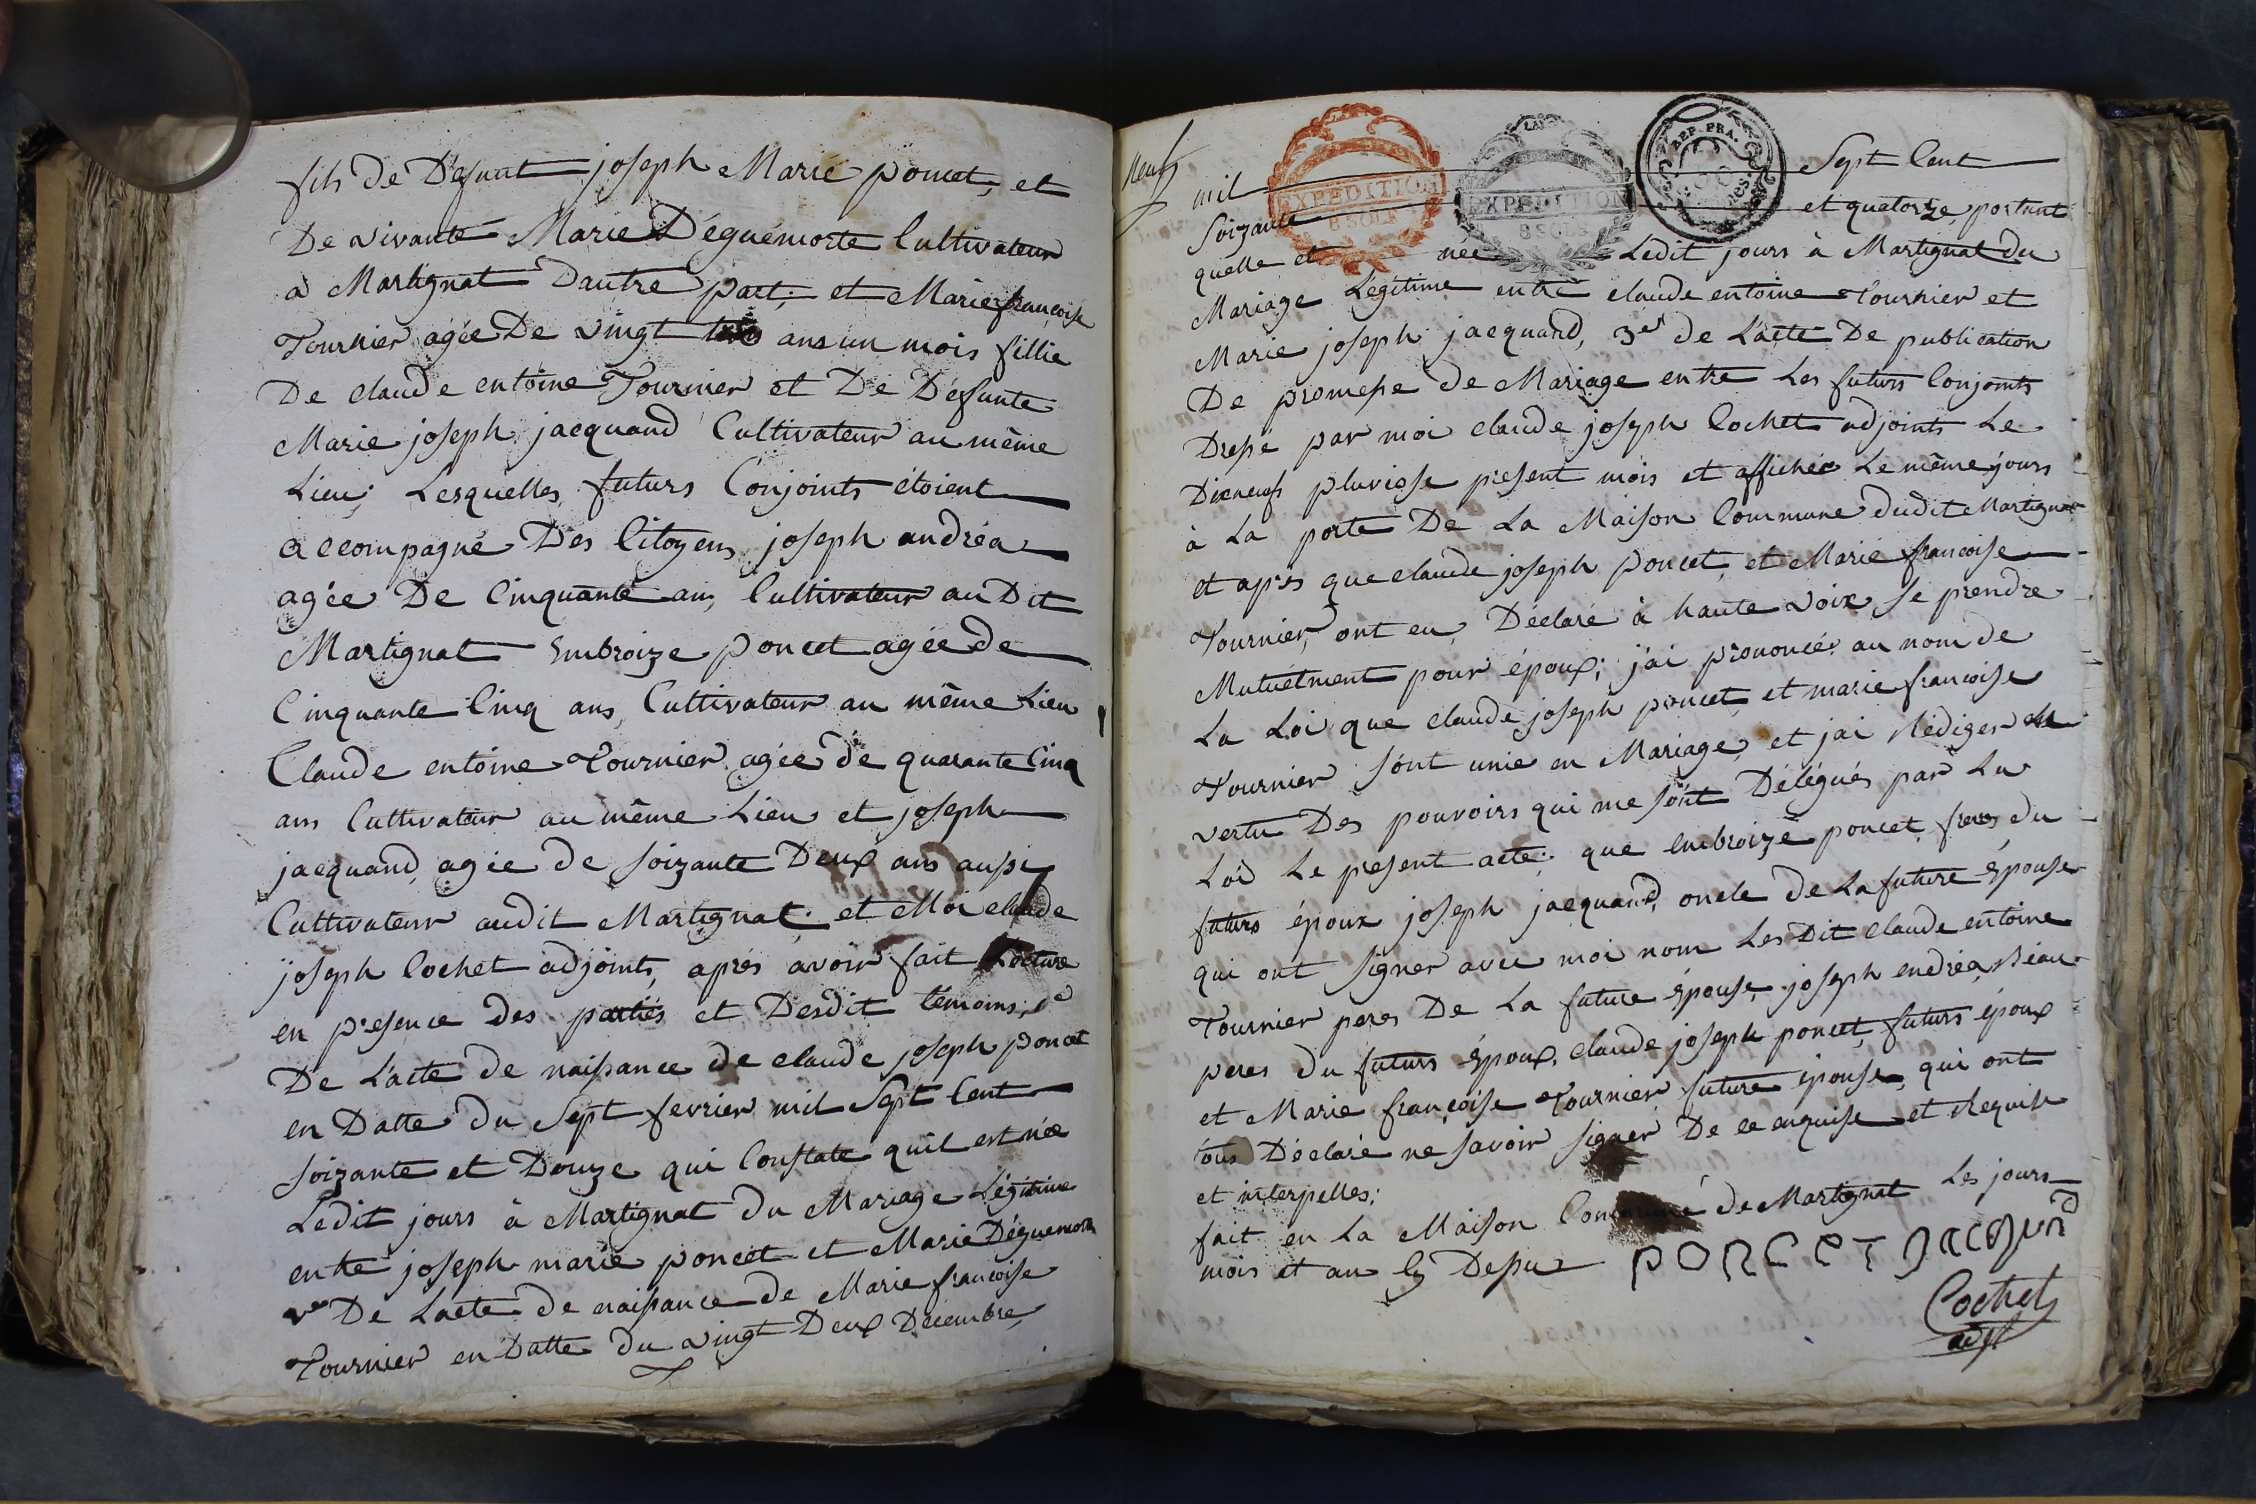 fils de Défunt joseph Marie poncet, et
De vivante Marie Déguémorte Cultivateur
a Martignat Dautre part; et Marie françoise
Tournier agée De vingt ans un mois fillie
De claude entoine Tournier et De Défunte
Marie joseph jacquand Cultivateur au même
Lieu; Lesquelles futurs Conjoints étoient
accompagné Des Citoyens joseph andréa
agée De Cinquante ans, Cultivateur au Dit
Martignat embroize poncet agée de
Cinquante Cinq ans, Cultivateur au même Lieu
Claude entoine Tournier agée de quarante Cinq
ans Cultivateur au même Lieu et joseph
jacquand, agée de soizante Deux ans aussi
Cultivateur audit Martignat; et Moi claude
joseph Cochet adjoints, aprés avoir fait Lecture
en presence des parties et Desdit témoins, 1e
De L'acte de naissance de claude joseph poncet
en Datte du Sept fevrier mil Sept Cent
soizante et Douze qui Constate quil est née
Ledit jours à Martignat du Mariage Légitime
entre joseph marie poncet et Marie Déguemorte
De Lacte de naissance de Marie francoise
Tournier en Datte du vingt Deux Décembre
neuf
LA
EXPEDITION
8 SOLS
LA
EXPEDITION
8 SOLS
REP. FRA.
mil Sept Cent
Soizante et quatorze, portant
quelle et née Ledit jours à Martignat du
Mariage Légitime entre claude entoine Tournier et
Marie joseph jacquand, 3et de L'acte De publication
De promesse de Mariage entre Les futurs Conjoints
Dressé par moi claude joseph Cochet adjoints Le
Dixneufs pluviose present mois et affichée Le même jours
à La porte De La Maison Commune dudit Martignat
et aprés que claude joseph poncet, et Marie francoise
Tournier, ont eu Déclaré à haute voix, se prendre
Mutuélment pour époux; j'ai prononcée au nom de
La Loi que claude joseph poncet, et marie francoise
Tournier sont unie en Mariage, et jai Rédiger en
vertu Des pouvoirs qui me sont Délégués par La
Loi Le present acte; que embroize poncet freres du
futurs époux joseph jacquand, oncle de La future épouse
qui ont signer avec moi nom Les Dit claude entoine
Tournier peres De La future épouse, joseph endréa, Béau
peres du futurs époux, claude joseph poncet, futurs époux
et Marie françoise Tournier future épouse, qui ont
tous Déclaré ne savoir signer De ce enquise et Requise
et interpelles;
fait en La Maison Commune de Martignat Les jours
mois et an PONCET JACQUAND
Cochet
adjt